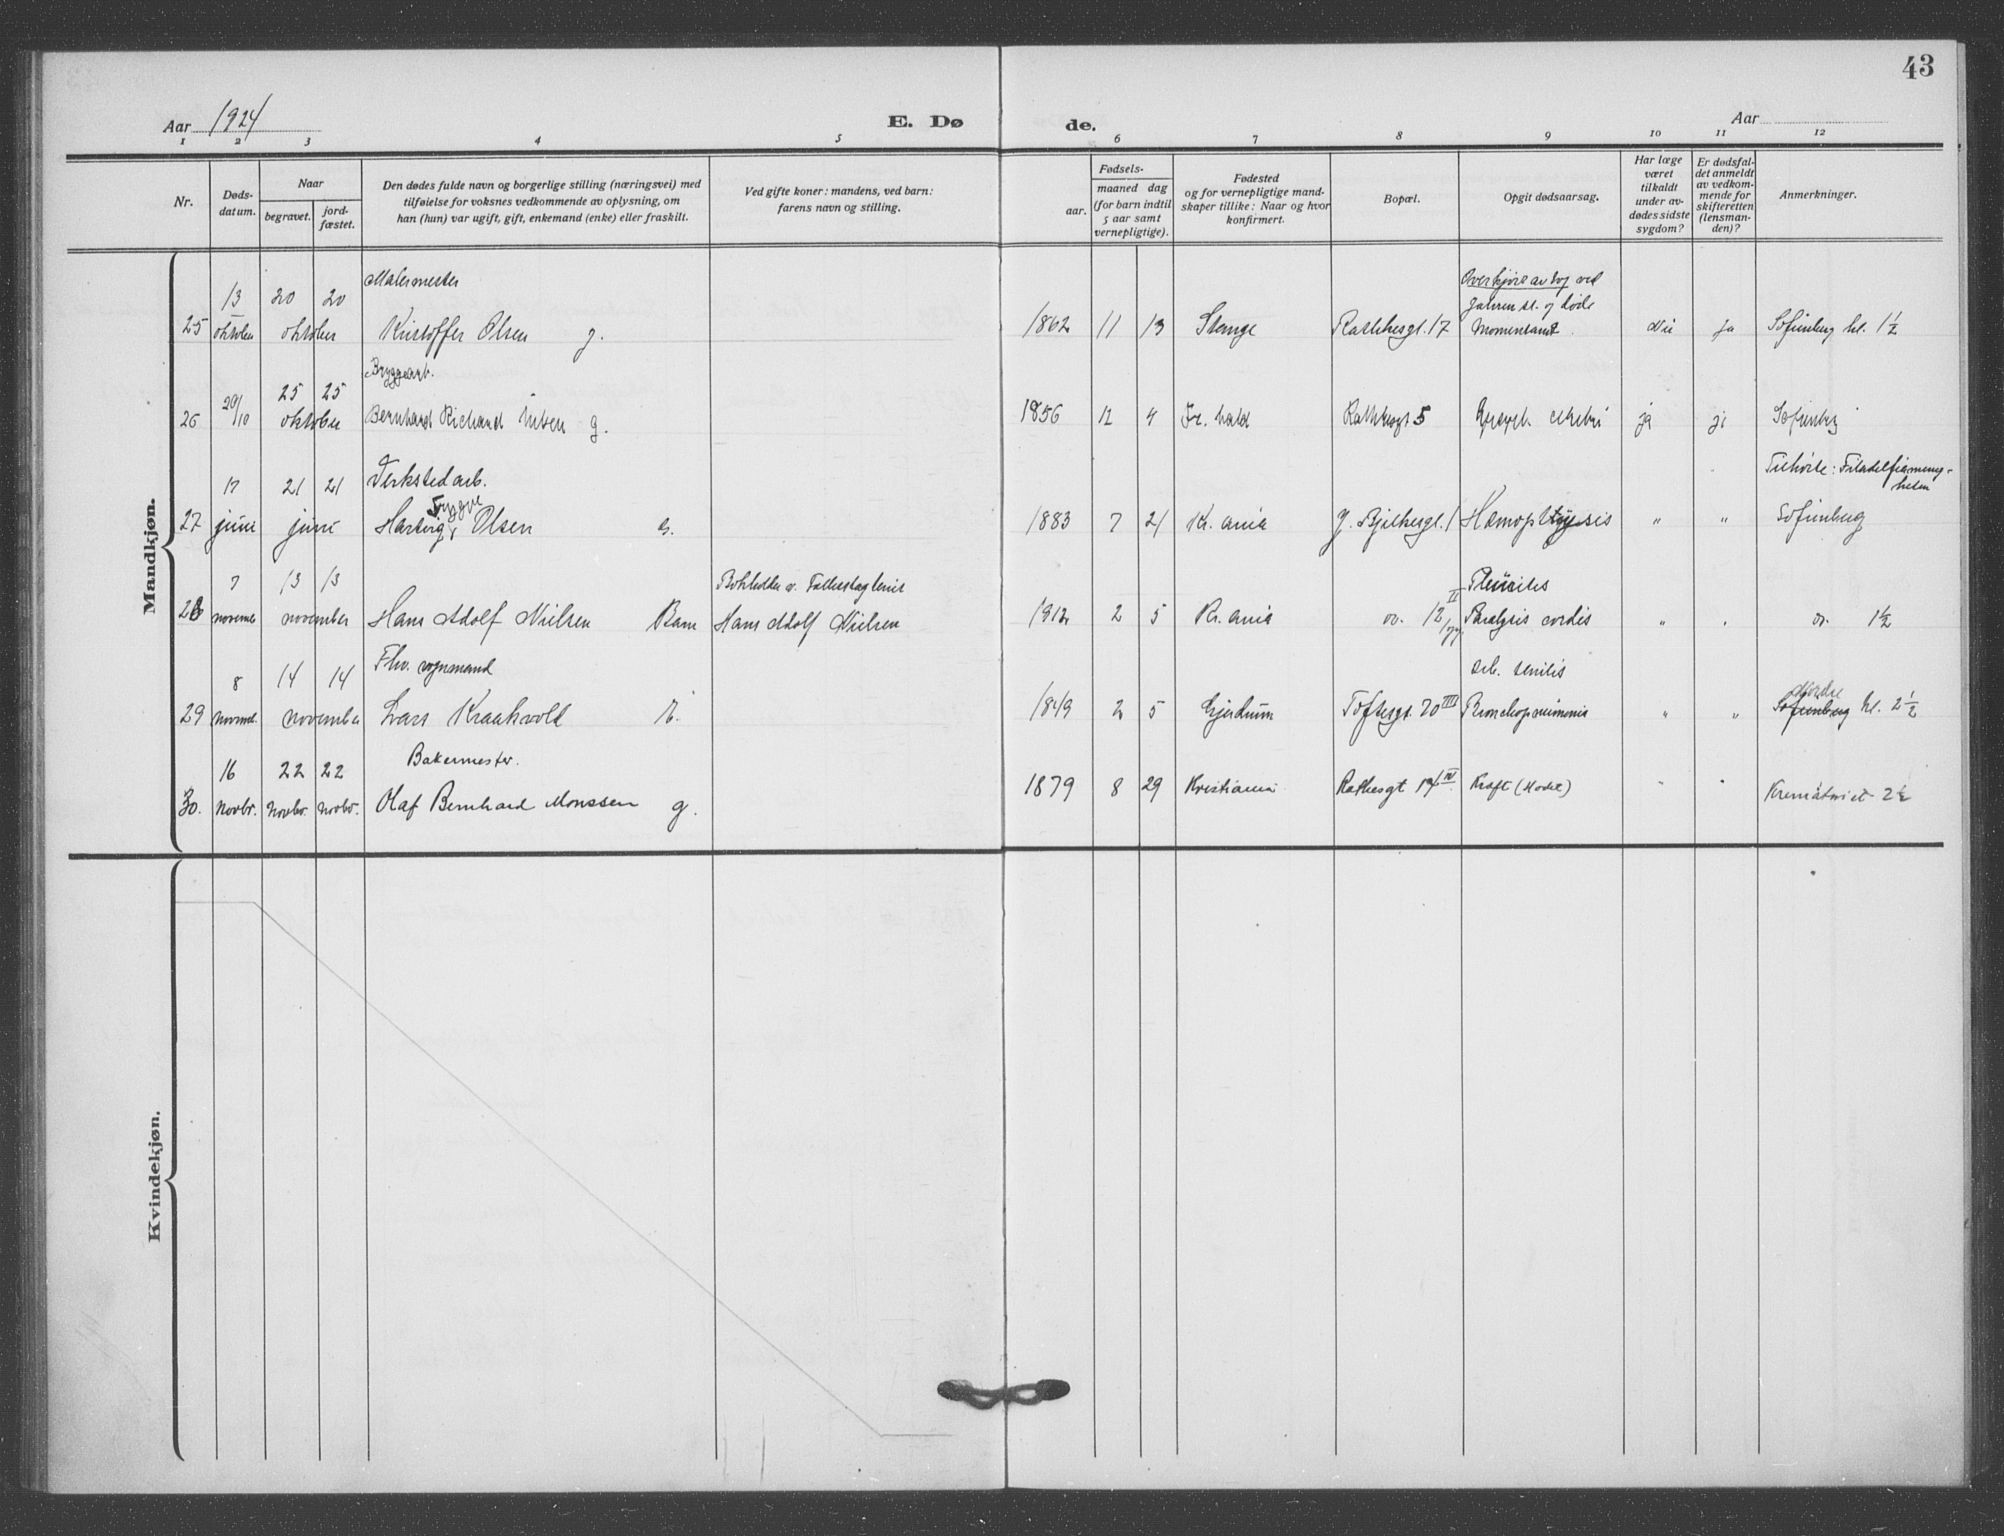 43
Aar 1924
E. Dø
de.
Aar
1 2 3 4 5 6 7 8 9 10 11 12
Nr.
Døds-
datum.
Naar
begravet.
jord-
fæstet.
Den dødes fulde navn og borgerlige stilling (næringsvei) med
tilføielse for voksnes vedkommende av oplysning, om
han (hun) var ugift, gift, enkemand (enke) eller fraskilt.
Ved gifte koner: mandens, ved barn:
farens navn og stilling.
Fødsels-
aar.
maaned dag
(for barn indtil
5 aar samt
vernepligtige).
Fødested
og for vernepligtige mand-
skaper tillike: Naar og hvor
konfirmert.
Bopæl.
Opgit dødsaarsag.
Har læge
været
tilkaldt
under av-
dødes sidste
sygdom?
Er dødsfal-
det anmeldt
av vedkom-
mende for
skifteretten
(lensman-
den)?
Anmerkninger.
Mandkjøn.
Malermester
13 20 20
25 oktober oktober Kristoffer Olsen g.
1862 11 13 Stange Rathkesgt. 17
Overkjørt av tog ved
st. og døde
Momentant.
Nei ja Sofienberg kl. 1½
Bryggearb.
20/10 25 25
26 oktober Bernhard Richard Nilsen g.
1856 12 4 Fr. hald Rathkesgt 5 ja ja Sofienberg
Verkstedarb.
17 21 21
27 juni juni Hartvig Trygve Olsen e.
1883 7 21 Kr. ania J. Bjelkesgt. 1 Hæmoptysis " "
Tilhørte: Filadelfiamenig-
heten
Sofienberg
7 13 13
28 novembr november Hans Adolf Nielsen Barn
Bokholder v.
Hans Adolf Nielsen
1912 2 5 Kr. ania " 12 II
Pleuritis
Paralysis cordis
" " " 1½
Fhv. vognmand
8 14 14
29 novmbr. november Lars Kraakvold E.
1849 2 5 Gjerdrum Toftesgt. 20 III
deb. senilis
Bronchopneumonia
" " Nordre
Sofienberg kl. 2½
Bakermester.
16 22 22
30. Novbr. Novbr. Novbr. Olaf Bernhard Monssen g.
1879 8 29 Kristiania Rathesgt 17 IV Kræft (Hodet) " "
Krematoriet 2½
Kvindekjøn.